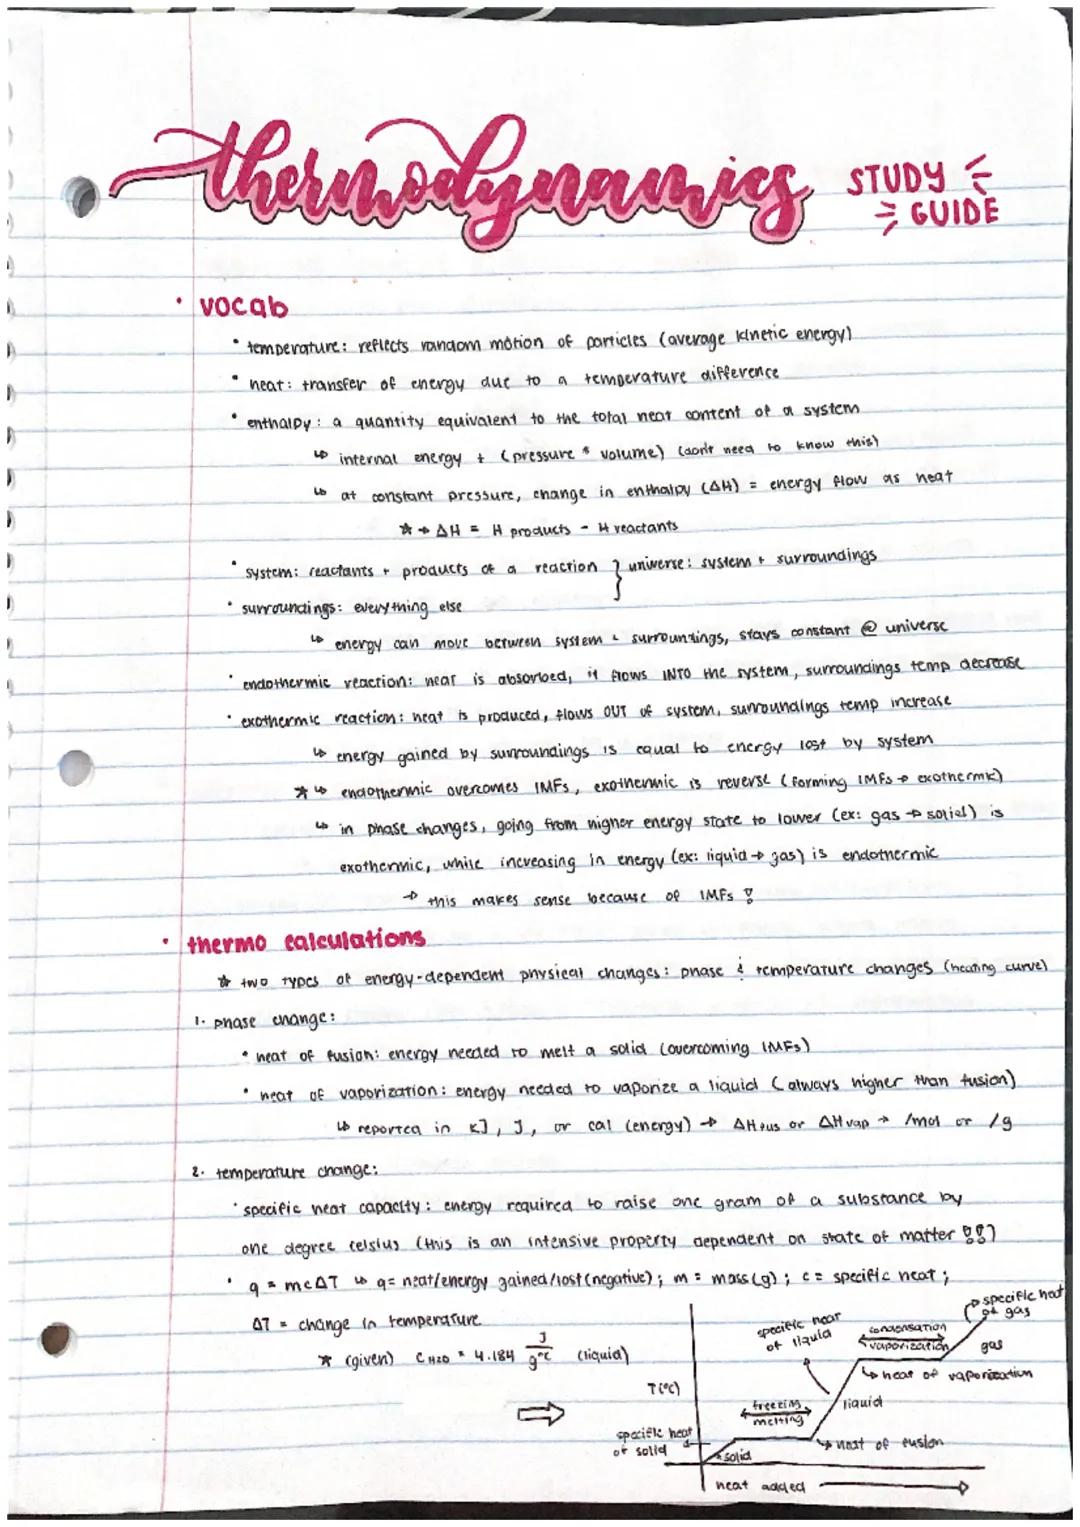 thermodynamics STUDY GUIDE
• vocab
• temperature: reflects random motion of particles (average kinetic energy)
• heat: transfer of energy due to a temperature difference
• enthalpy: a quantity equivalent to the total heat content of a system
↳ internal energy + (pressure * volume) (don't need to know this)
↳ at constant pressure, change in enthalpy (ΔH) = energy flow as heat
☆→ ΔH = H products - H reactants
• system: reactants + products of a reaction } universe: system + surroundings
• surroundings: everything else
↳ energy can move between system & surroundings, stays constant @ universe
• endothermic reaction: heat is absorbed, it flows INTO the system, surroundings temp decrease
• exothermic reaction: heat is produced, flows OUT of system, surroundings temp increase
↳ energy gained by surroundings is equal to energy lost by system
☆↳ endothermic overcomes IMFs, exothermic is reverse (forming IMFs → exothermic)
↳ in phase changes, going from higher energy state to lower (ex: gas → solid) is
exothermic, while increasing in energy (ex: liquid → gas) is endothermic
→ this makes sense because of IMFs !
• thermo calculations
☆ two types of energy-dependent physical changes: phase & temperature changes (heating curve)
1. phase change:
• heat of fusion: energy needed to melt a solid (overcoming IMFs)
• heat of vaporization: energy needed to vaporize a liquid (always higher than fusion)
↳ reported in kJ, J, or cal (energy) → ΔHfus or ΔHvap → /mol or /g
2. temperature change:
• specific heat capacity: energy required to raise one gram of a substance by
one degree celsius (this is an intensive property dependent on state of matter !!)
• q = mcΔT ↳ q = heat/energy gained/lost (negative); m = mass (g); c = specific heat;
ΔT = change in temperature
☆ (given) C H2O = 4.184 J/g°C (liquid)
⇒
T(°C)
specific heat of solid
solid
freezing
melting
heat of fusion
specific heat of liquid
liquid
condensation
vaporization
heat of vaporization
specific heat of gas
gas
heat added →